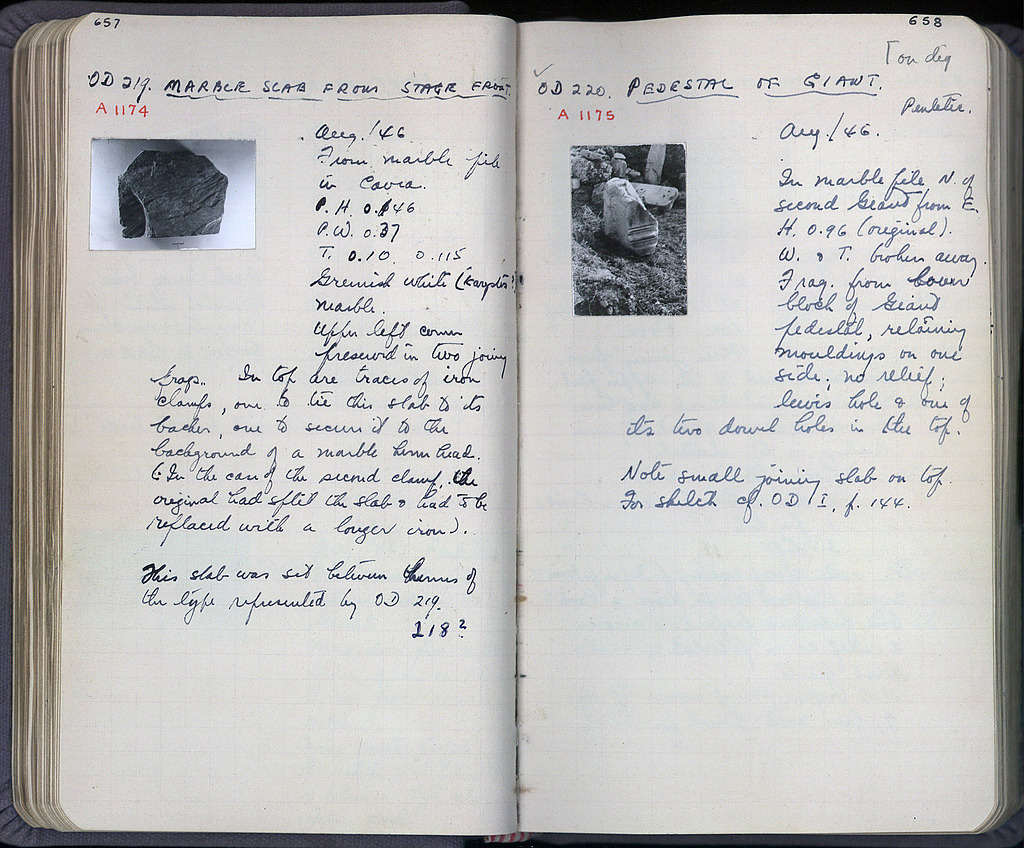 657
OD 219. MARBLE SLAB FROM STAGE FRONT.
A 1174
Aug./46
From marble pile
in Cavea.
P. H. 0.46
P. W. 0.37
T. 0.10. 0.115
Greenish white (Karystos?)
marble.
Upper left corner
preserved in two joining
frags. In top are traces of iron
clamps, one to tie this slab to its
backer, one to secure it to the
background of a marble herm head.
(In the case of the second clamp, the
original had split the slab & had to be
replaced with a longer iron).
This slab was set between herms of
the type represented by OD 219.
218?
658
[on dig
✓ OD 220. PEDESTAL OF GIANT.
A 1175
Pentelic.
Aug./46.
In marble pile N. of
second Giant from E.
H. 0.96 (original).
W. & T. broken away.
Frag. from lower
block of Giant
pedestal, retaining
mouldings on one
side, no relief;
lewis hole & one of
its two dowel holes in the top.
Note small joining slab on top.
For sketch cf. OD I, p. 144.